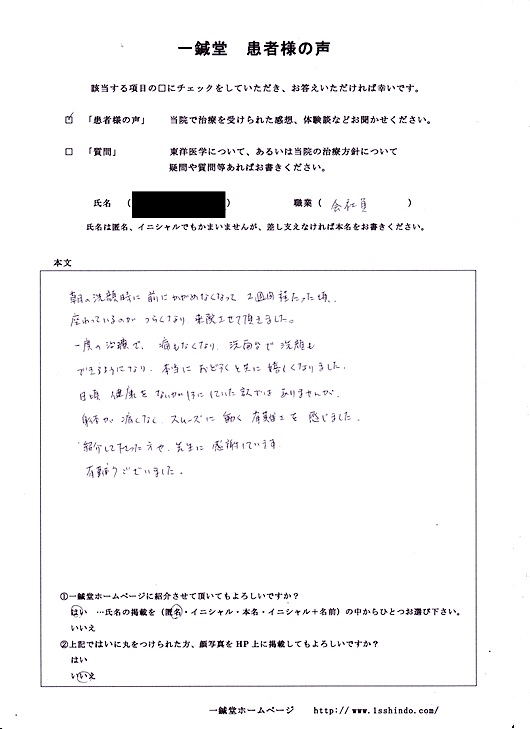 一鍼堂　患者様の声
該当する項目の□にチェックをしていただき、お答えいただければ幸いです。
☑　「患者様の声」　当院で治療を受けられた感想、体験談などお聞かせください。
□　「質問」　東洋医学について、あるいは当院の治療方針について
疑問や質問等あればお書きください。
氏名　（　　　）　職業（　会社員　）
氏名は匿名、イニシャルでもかまいませんが、差し支えなければ本名をお書きください。
本文
朝の洗顔時に 前にかがめなくなって 2週間程たった頃、
座わっているのが つらくなり 来院させて頂きました。
一度の治療で、痛もなくなり、洗面台で 洗顔も
できるようになり、本当に おどろくと共に 嬉しくなりました。
日頃 健康を ないがしろに していた訳では ありませんが、
身体が 痛くなく、スムーズに 動く 有難さを 感じました。
紹介して下さった方や、先生に 感謝しています。
有難うございました。
①一鍼堂ホームページに紹介させて頂いてもよろしいですか？
はい　…氏名の掲載を（匿名・イニシャル・本名・イニシャル＋名前）の中からひとつお選び下さい。
いいえ
②上記ではいに丸をつけられた方、顔写真をHP上に掲載してもよろしいですか？
はい
いいえ
一鍼堂ホームページ　http://www.1sshindo.com/